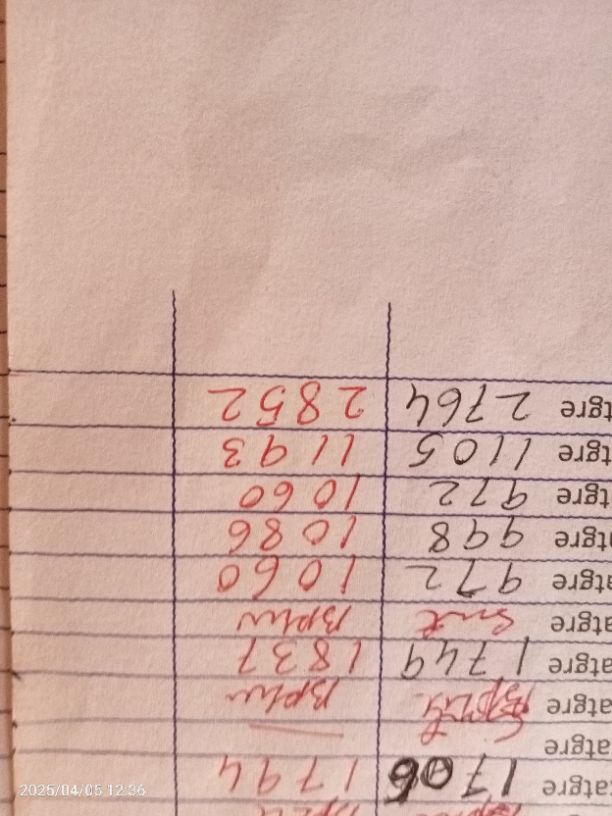 1794
atgre 1706
atgre
atgre
atgre 1749 1837
atgre
atgre 972 1060
tgre 998 1086
tgre 972 1060
tgre 1105 1193
tgre 2764 2852
2025/04/05 12:36